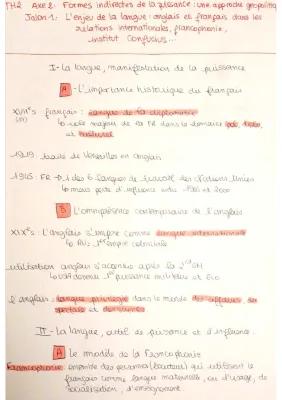 TH2 Axe 2: Formes indirectes de la puissance: une approche géopolitique
Jalon 1: L'enjeu de la langue: anglais et français dans les
relations internationales, francophonie,
institut Confucius...
I - La langue, manifestation de la puissance
A - L'importance historique du français
XVIIIes français: langue de la diplomatie
↳ rôle majeur de la FR dans le domaine
et culturel
1919: traité de Versailles en anglais
1945: FR → 1 des 6 langues de travail des Nations Unies
↳ mais perte d'influence entre et 2000
B L'omniprésence contemporaine de l'anglais
XIXes: L'anglais s'impose comme langue internationale
↳ RU: 1er empire colonial
utilisation anglais s'accentue après la 2nd GM
↳ USA devenu 1ère puissance militaire et éco
l'anglais: langue privilégiée dans le monde des affaires, du
spectacle et des sciences
II - La langue, outil de puissance et d'influence.
A Le modèle de la Francophonie
Francophonie: ensemble des personnes (locuteurs) qui utilisent le
français comme langue maternelle, ou d'usage, de
socialisation, d'enseignement